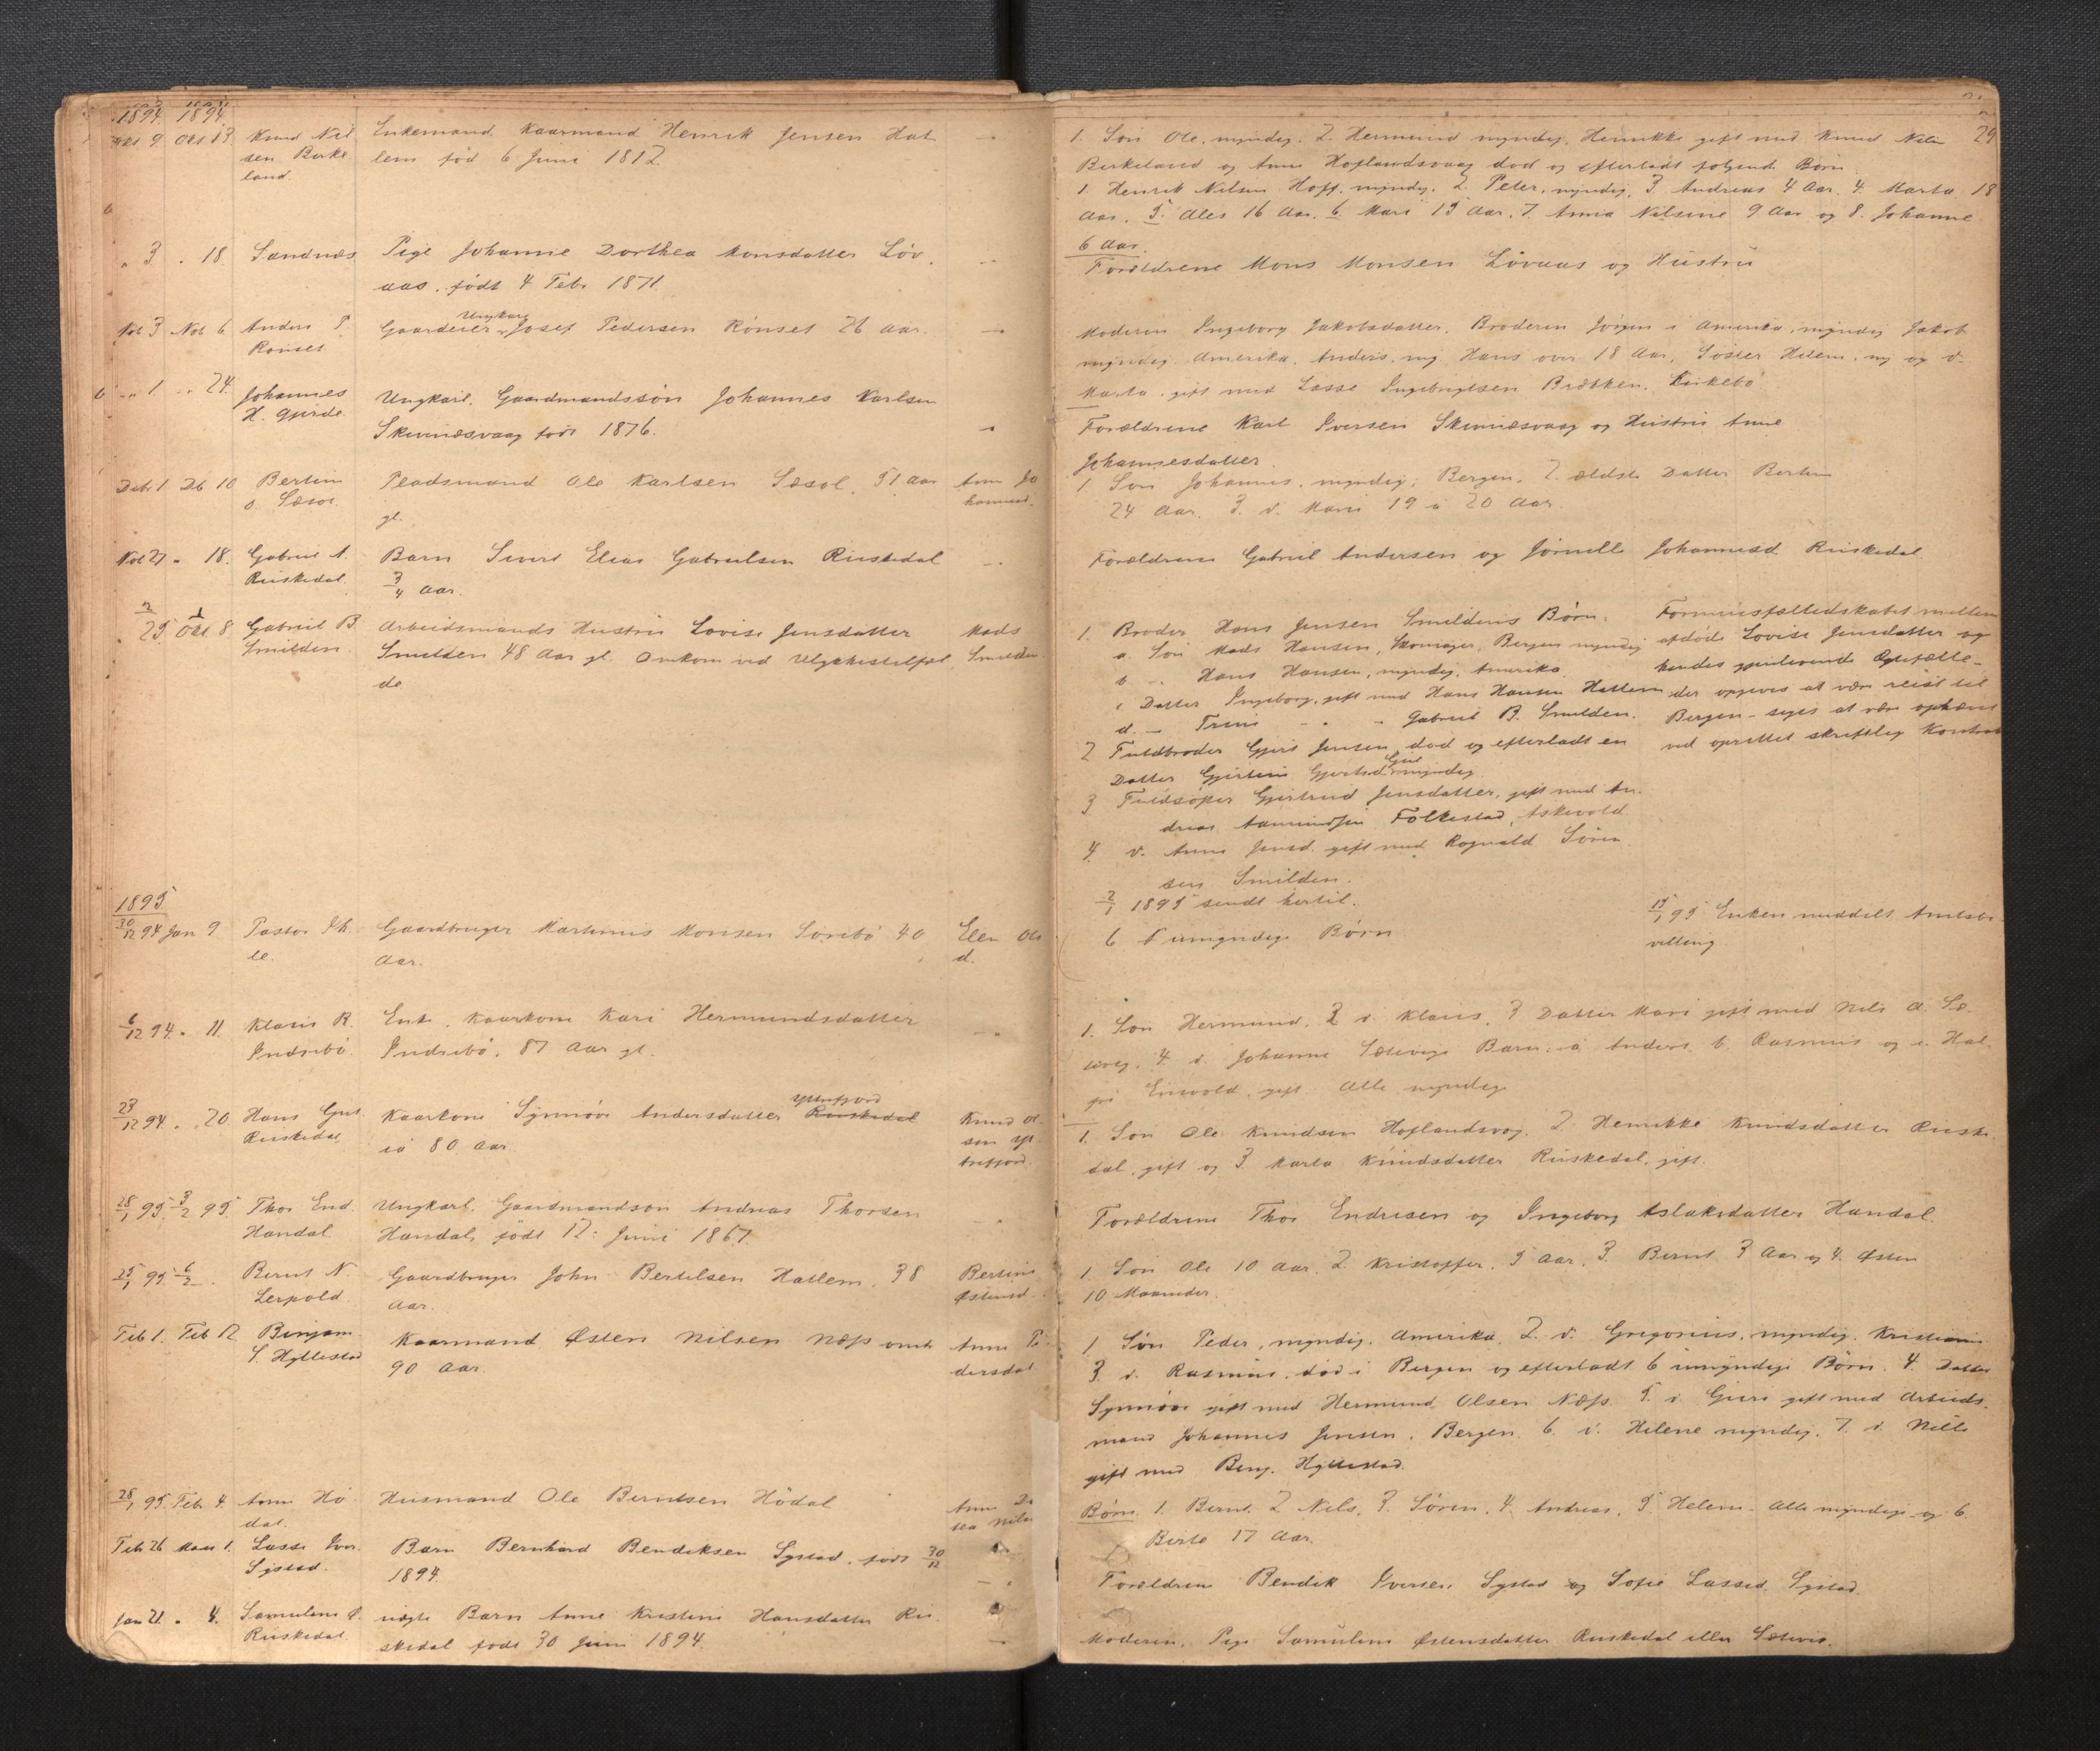 1894. 1894.
Okt 9 Okt 13 Knud Nil Enkemand. Kaarmand Henrik Jensen Hat —
sen Birke lem fød 6 Juni 1812.
land.
" 3 . 18. Sandnæs. Pige Johanne Dorthea Monsdatter Löv —
aas. födt 4 Febr 1871.
Ungkarl
Nov 3 Nov 6 Anders P. Gaardeier Josef Pedersen Rönset 26 aar. —
Rönset
" 1 " 24. Johannes Ungkarl. Gaardmandssön Johannes Karlsen
H. Gjerde. Skivenæsvaag født 1876. —
Debr 1 Db 10 Bertine Pladsmand Ole Karlsen Sæsol. 51 aar Anne Jo
O. Sæsol. gl. hannesd.
Nov 27 " 18. Gabriel A. Barn Sivert Elias Gabrielsen Risnedal —
Riskedal. 3/4 aar.
25 Okt. 8. Gabriel B Arbeidsmands Hustru Lovise Jensdatter Mads
Smilden. Smilden 48 aar gl. Omkom ved Ulykkestilfæl Smilden.
de
1895.
30/12 94 Jan 9. Pastor Gaardbruger Martinus Monsen Sörebö 40 Elen Ols
aar. d.
6/12 94. " 11. Klaus R. Enke. Kaarkone Kari Hermundsdatter —
Indrebö. Indrebö. 87 aar gl.
Ytrefjord
23/12 94. " 20. Hans Gut. Kaarkone Synnöve Andersdatter Riskedal Knud Ol
Riskedal. ca 80 aar. sen Yt
trefjord.
28/1 95. 3/2 95. Thor End. Ungkarl. Gaardmandsön Andreas Thorsen —
Handal. Handal, födt 12. Juni 1867.
25/1 95 6/2 . Bernt N. Gaardbruger John Bertelsen Hatlem. 38 Bertine
Lerpold. aar. Østensd.
Feb 1. Feb 12 Binjam. Kaarmand Østen Nilsen Næss omtr Anne Pe
S. Hyllestad 90 aar. dersdat
28/1 95. Feb 4. Anne Hö Husmand Ole Berntsen Hödal
dal.
Feb 26 Mars 1. Lasse Iver. Barn Bernhard Bendiksen Systad. født 30/12
Systad. 1894. —
Jan 21. " 4. Samuline Ø. uægte Barn Anne Kristine Hansdatter Ris
Riskedal. skedal født 30 Juni 1894. —
29
1. Sön Ole, myndig. 2. Hermund myndig. Henrikke gift med Knud Nils
Birkeland og Anne Hoflandsvaag död og efterladt følgende Børn.
1. Henrik Nilsen Hoff. myndig. 2. Peter, myndig. 3. Andreas 4 aar. 4. Marta 18
aar. 5. Ales 16 aar. 6. Mari 13 aar. 7. Anna Nilsine 9 aar og 8. Johanne
6 aar.
Forældrene Mons Monsen Lövaas og Hustru
Moderen Ingeborg Jakobsdatter. Broderen Jörgen i Amerika, myndig Jakob
myndig. Amerika. Anders, my Hans over 18 aar, Söster Helene, my og d.
Marta. gift med Lasse Ingebrigtsen Brækken. Kirkebö
Forældrene Karl Iversen Skivenæsvaag og Hustru Anne
Johannesdatter.
1. Sön Johannes, myndig, Bergen, 2. ældste Datter Bertine
24 aar. 3. d. Marie 19 a 20 aar.
Forældrene Gabriel Andersen og Jörnille Johannesd. Riskedal.
1. Broder Hans Jensen Smildens Børn. Formuesfællesskabet mellem
a. Sön Mads Hansen, Skomager, Bergen myndig afdøde Lovise Jensdatter og
b. - Hans Hansen, myndig, Amerika. hendes gjenlevende Ægtefælle -
c Datter Ingeborg, gift med Hans Hansen Hatlem der opgives at være reist til
d. - Trine - - - Gabriel B. Smilden. Bergen - siges at være ophævet
2 Fuldbroder Gjert Jensen, död og efterladt en ved oprettet skriftlig Kontrakt
Datter Gjertine Gjertsd. myndig.
3 Fuldsöster Gjertrud Jensdatter, gift med An
dreas Folkestad, Askevold
4. d. Anne Jensd. gift med Rognald Sören
sen Smilden.
2/1 1895 sendt hertil. 15/1 95 Enken meddelt Amtsbe
6 umyndige Børn villing.
1. Sön Hermund, 2 d. Klaus, 3 Datter Mari gift med Nils A. Sæ
4. d. Johanne Børn. a Anders. b. Rasmus og c. Hal
Eisvold, gift. Alle myndige
1. Sön Ole Knudsen Hoflandsvag. 2 Henrikke Knudsdatter Riske
dal, gift og 3. Marta Knudsdatter Riskedal, gift.
Forældrene Thor Endresen og Ingeborg Aslaksdatter Handal.
1. Sön Ole 10 aar. 2. Kristoffer. 5 aar. 3. Bernt 3 aar og 4. Østen
10 Maaneder.
1 Sön Peder, myndig. Amerika. 2. d. Gregorius, myndig. Kristiania
3. d. Rasmus, död i Bergen og efterladt 6 umyndige Børn. 4. Datter
Synnöve gift med Hermund Olsen Næss. 5. d. Guri gift med Arbeids
mand Johannes Jensen, Bergen. 6. d. Helene myndig. 7. d. Nille
gift med Benj. Hyllestad.
Børn. 1. Bernt. 2 Nils, 3. Sören, 4. Andreas, 5 Helene. Alle myndige og 6.
Berte 17 aar.
Forældrene Bendik Iversen Systad og Sofie Lassed. Systad.
Moderen. Pige Samuline Østensdatter Riskedal eller